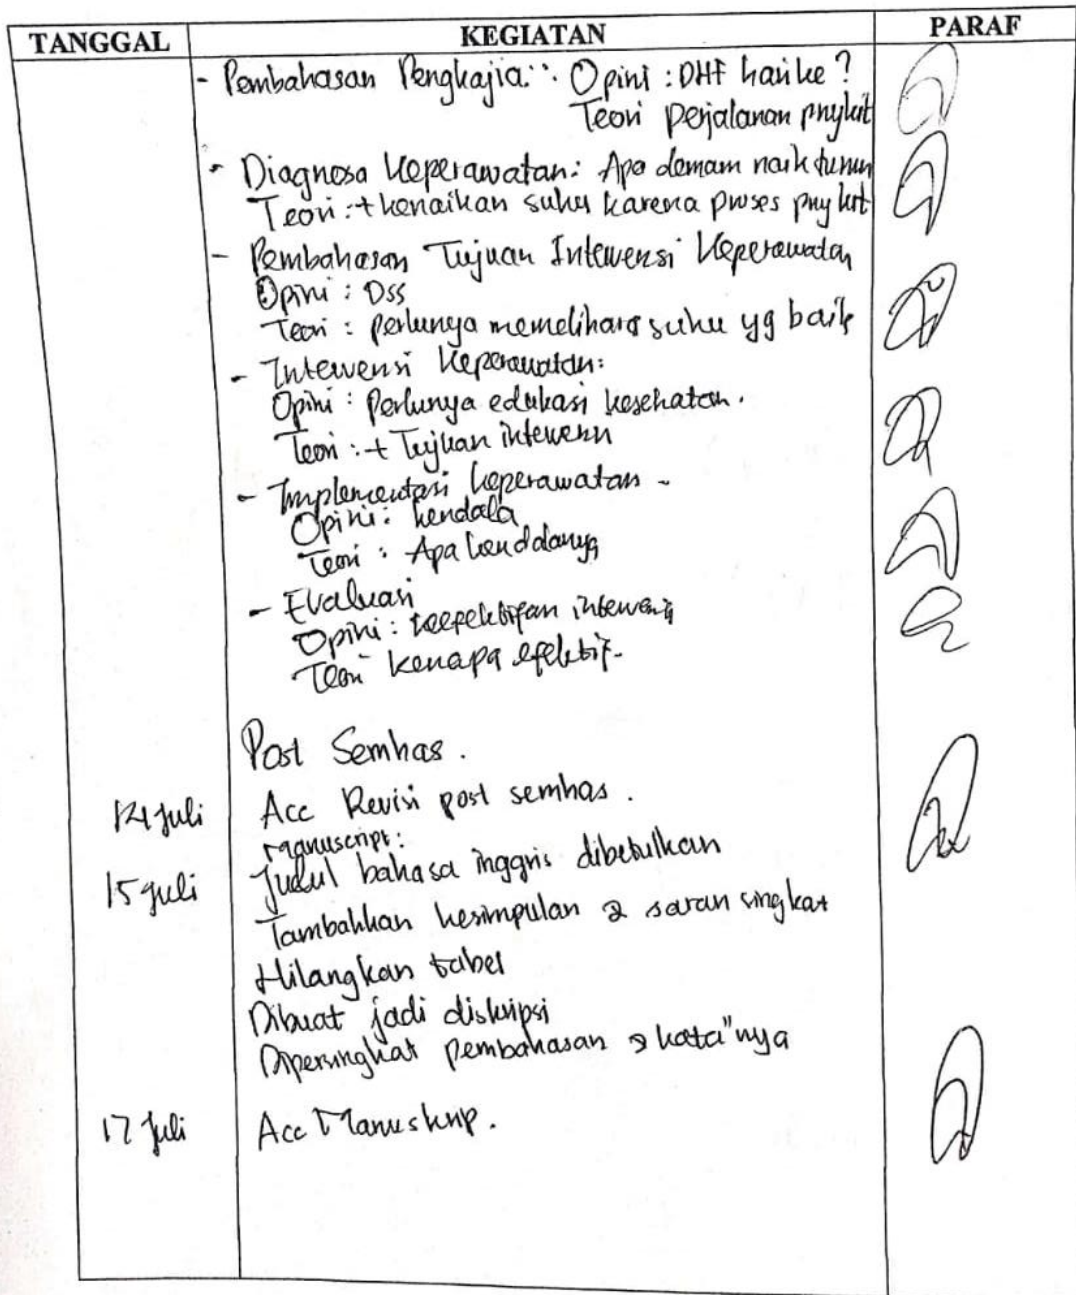 TANGGAL KEGIATAN PARAF
- Pembahasan Pengkajia : Opini : DHF hari ke ?
Teori perjalanan pnykit
- Diagnosa Keperawatan : Apa demam naik turun
Teori : + kenaikan suhu karena proses pnykit
- Pembahasan Tujuan Intervensi Keperawatan
Opini : DSS
Teori : perlunya memelihara suhu yg baik
- Intervensi Keperawatan :
Opini : Perlunya edukasi kesehatan .
Teori : + Tujuan intervensi
- Implementasi keperawatan -
Opini : kendala
Teori : Apa kendalanya
- Evaluasi
Opini : keefektifan intervensi
Teori kenapa efektif -
Post Semhas .
14 Juli Acc Revisi post semhas .
Manuscript :
15 Juli Judul bahasa inggris dibetulkan
Tambahkan kesimpulan & saran singkat
Hilangkan tabel
Dibuat jadi diskripsi
Dipersingkat pembahasan & kata"nya
17 Juli Acc Manuskrip .